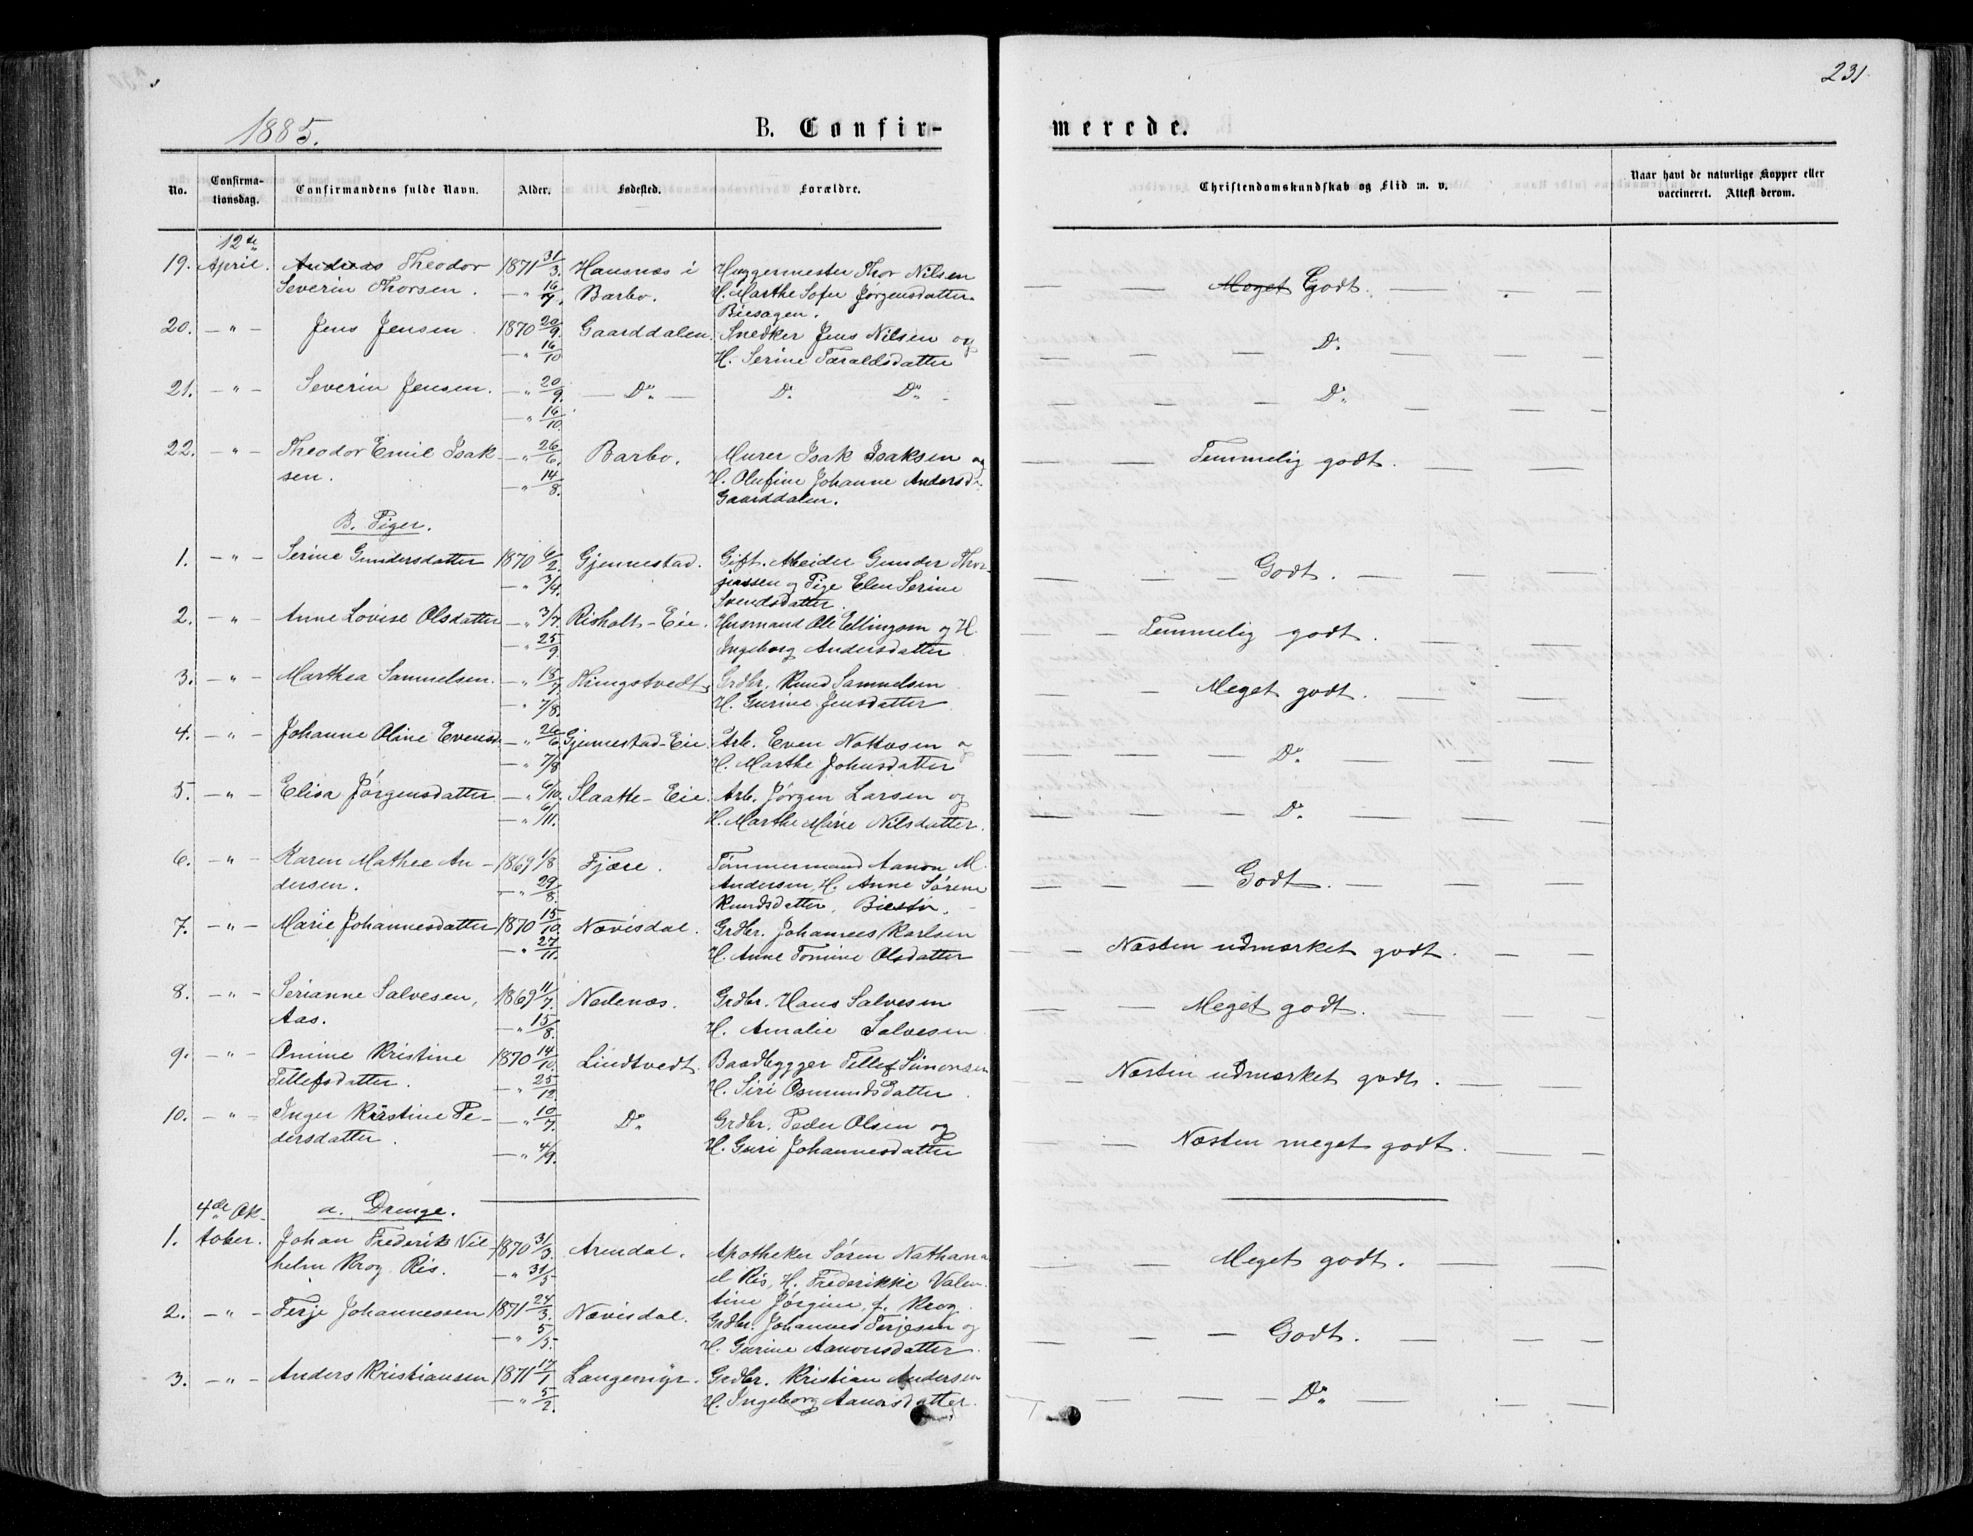 231
1885.
B. Confir-
merede.
No.
Confirma-
tionsdag.
Confirmandens fulde Navn.
Alder.
Fødested.
Forældre.
Christendomskundskab og Flid m. v.
Naar havt de naturlige Kopper eller
vaccineret. Attest derom.
12te
19. April. Andreas Theodor 1871 31/3. Hansnæs i Huggermester Thor Nilsen
Severin Thorsen. — " 16/4. Barbo. H. Marthe Sofie Jørgensdatter. — — Meget Godt. — — —
Biesagen.
20. — " — Jens Jensen 1870 20/9. Gaarddalen. Snedker Jens Nilsen og
— " 16/10 H. Serine Taraldsdatter — — — Do — — —
21. — " — Severin Jensen. — " 20/9. — Do — Do Do — — — Do — — —
— " 16/10.
22. — " — Theodor Emil Isak- — " 26/6. Barbo. Murer Isak Isaksen og
sen. — " 14/8. H. Olufine Johanne Andersd. — — Temmelig godt. — —
Gaarddalen.
B. Piger.
1. — " — Serine Gundersdatter 1870 6/2. Gjennestad. Gift. Arbeider Gunder Thor-
— " 3/4. jassen og Pige Elen Serine — — — Godt. — — —
Svendsdatter.
2. — " — Anne Lovise Olsdatter — " 3/7. Risholt-Eie. Husmand Ole Ellingsen og H.
— " 25/9. Ingeborg Andersdatter — — Temmelig godt. — — —
3. — " — Marthea Samuelsen. — " 15/7 Hingstvedt Grdbr. Knud Samuelsen
— " 7/8. H. Gurine Jensdatter — — Meget godt. — — —
4. — " — Johanne Oline Evensd. — " 26/6. Gjennestad-Eie Arb. Even Nottosen og
— " 7/8 H. Marthe Johnsdatter — — — Do — — —
5. — " — Elisa Jørgensdatter — " 6/10. Slaatte-Eie. Arb. Jørgen Larsen og
— " 6/11. H. Marthe Marie Nilsdatter. — — — Do — — —
6. — " — Karen Mathee An- 1869 1/8 Fjære. Tømmermand Aanon M.
dersen. — " 29/8. Andersen, H. Anne Sørine — — — Godt. — — —
Knudsdatter,
7. — " — Marie Johannesdatter 1870 15/10. Nævisdal. Grdbr. Johannes Karlsen
— " 27/11. H. Anne Tomine Olsdatter — — Næsten udmærket godt. — —
8. — " — Serianne Salvesen, 1869 11/7 Nedenæs. Grdbr. Hans Salvesen
Aas. — " 15/8. H. Amalie Salvesen — — Meget godt. — — —
9. — " — Omine Kristine 1870 14/10. Lindtvedt. Baadbygger Tellef Simonsen
Tellefsdatter. — " 25/12 H. Siri OsmundsDatter. — — Næsten udmærket godt. — —
10. — " — Inger Kristine Pe- — " 10/7. Do Grdbr. Peder Olsen og
dersdatter. — " 4/9. H. Guri Johannesdatter — — Næsten meget godt. — —
4de Ok- a. Drenge.
1. tober. Johan Frederik Vil- 1870 31/3. Arendal. Apotheker Søren Nathana-
helm Krog Ris. — " 31/5 el Ris, H. Frederikke Valen- — — Meget godt. — —
tine Jørgine, f. Krog.
2. — " — Terje Johannessen 1871 24/3. Nævisdal. Grdbr. Johannes Terjesen og
— " 5/5. H. Gurine Aanonsdatter. — — — Godt. — — —
3. — " — Anders Kristiansen 1871 17/1 Langemyr. Grdbr. Kristian Andersen
— " 5/2. H. Ingeborg Aanonsdatter. — — — Do — — —